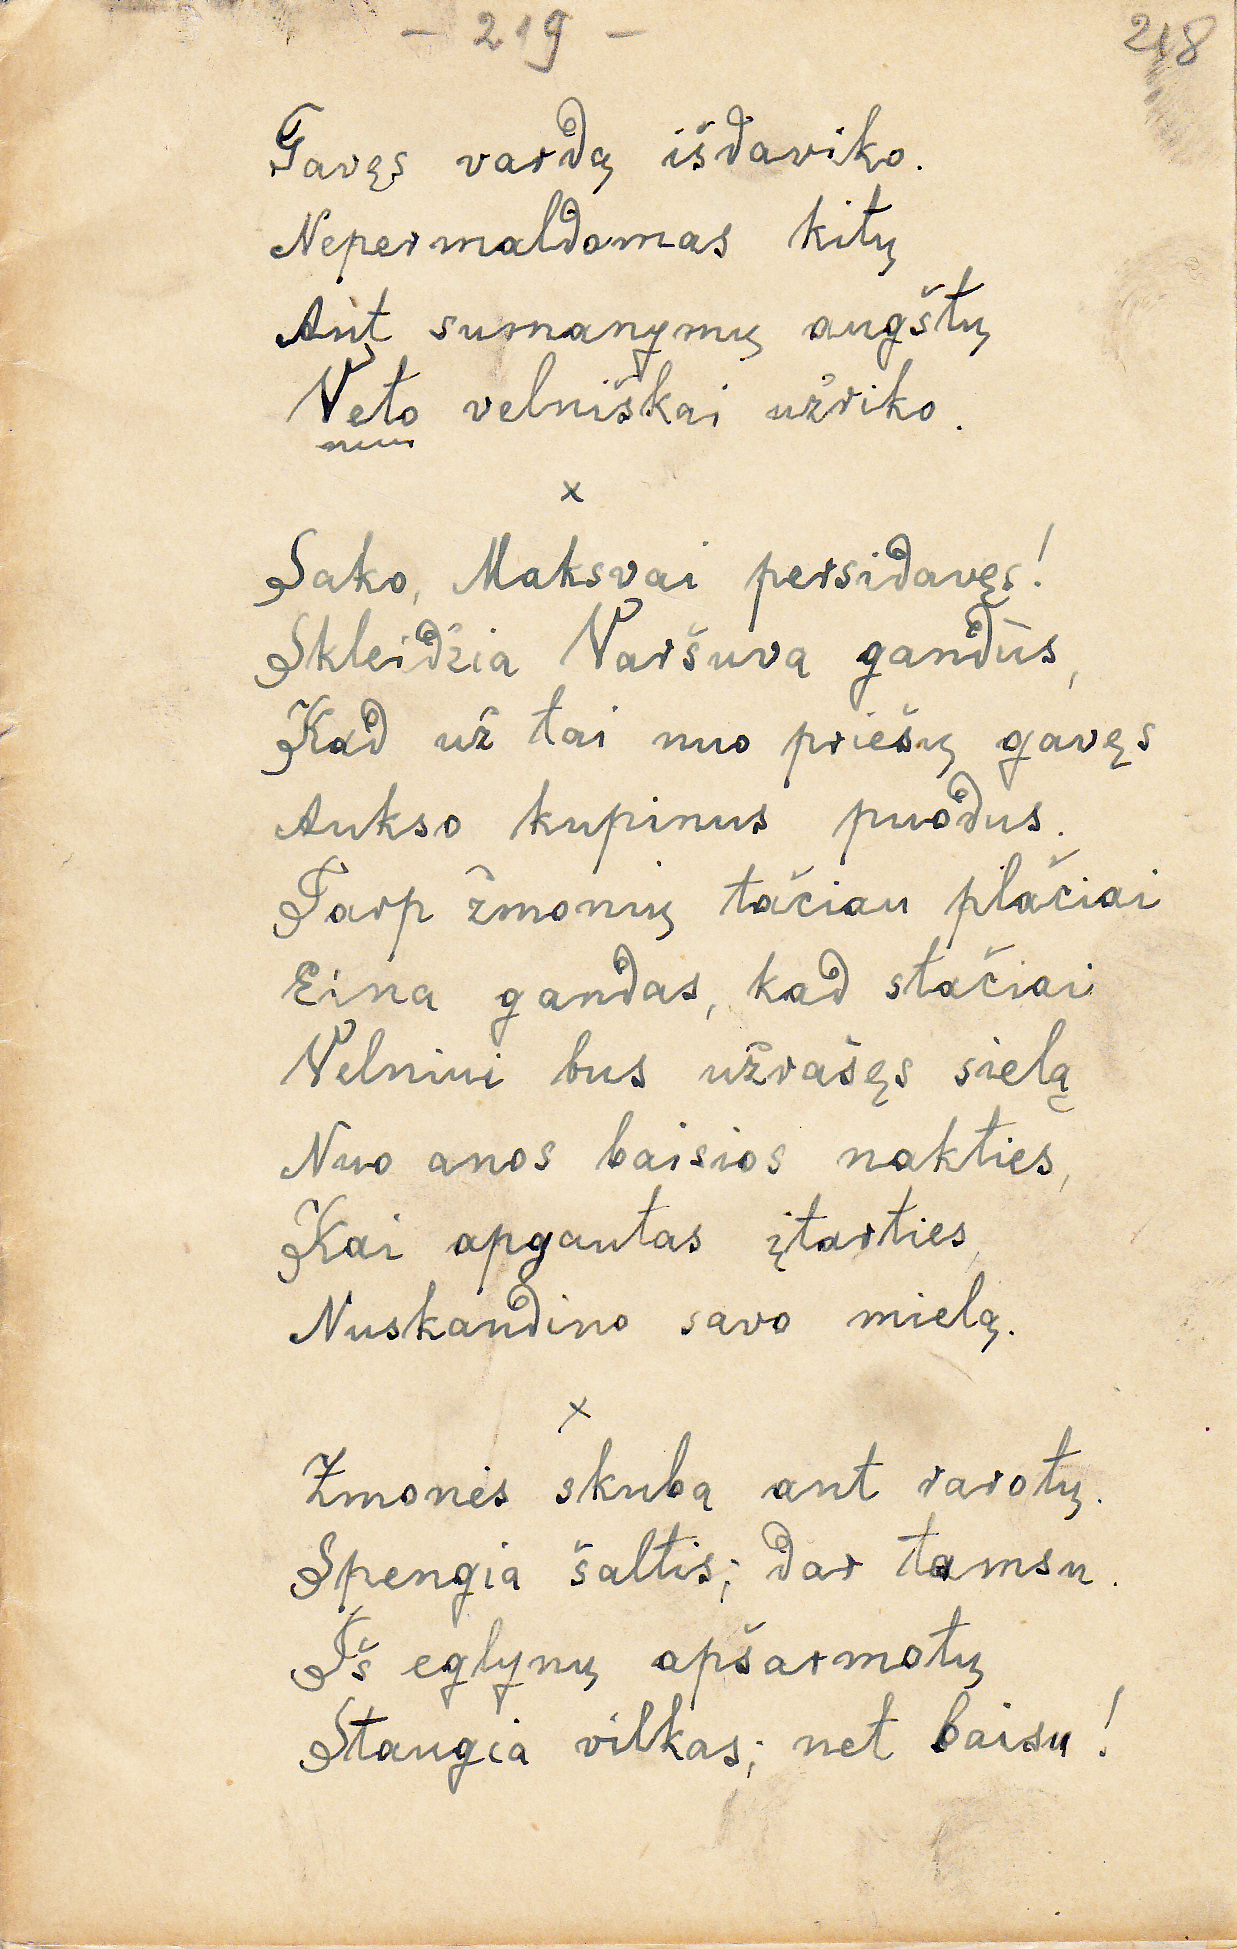 - 219 -
218
Gavęs vardą išdaviko.
Nepermaldomas kitų
Ant sumanymų augštų
Veto velniškai užriko.
x
Sako, Maksvai persidavęs!
Skleidžia Varšuva gandus,
Kad už tai nuo priešų gavęs
Aukso kupinus puodus.
Tarp žmonių tačiau plačiai
Eina gandas, kad stačiai
Velniui bus užrašęs sielą
Nuo anos baisios nakties,
Kai apgautas įtarties,
Nuskandino savo mielą.
x
Žmonės skuba ant rarotų.
Spengia šaltis; dar tamsu.
Iš eglynų apšarmotų
Staugia vilkas; net baisu!